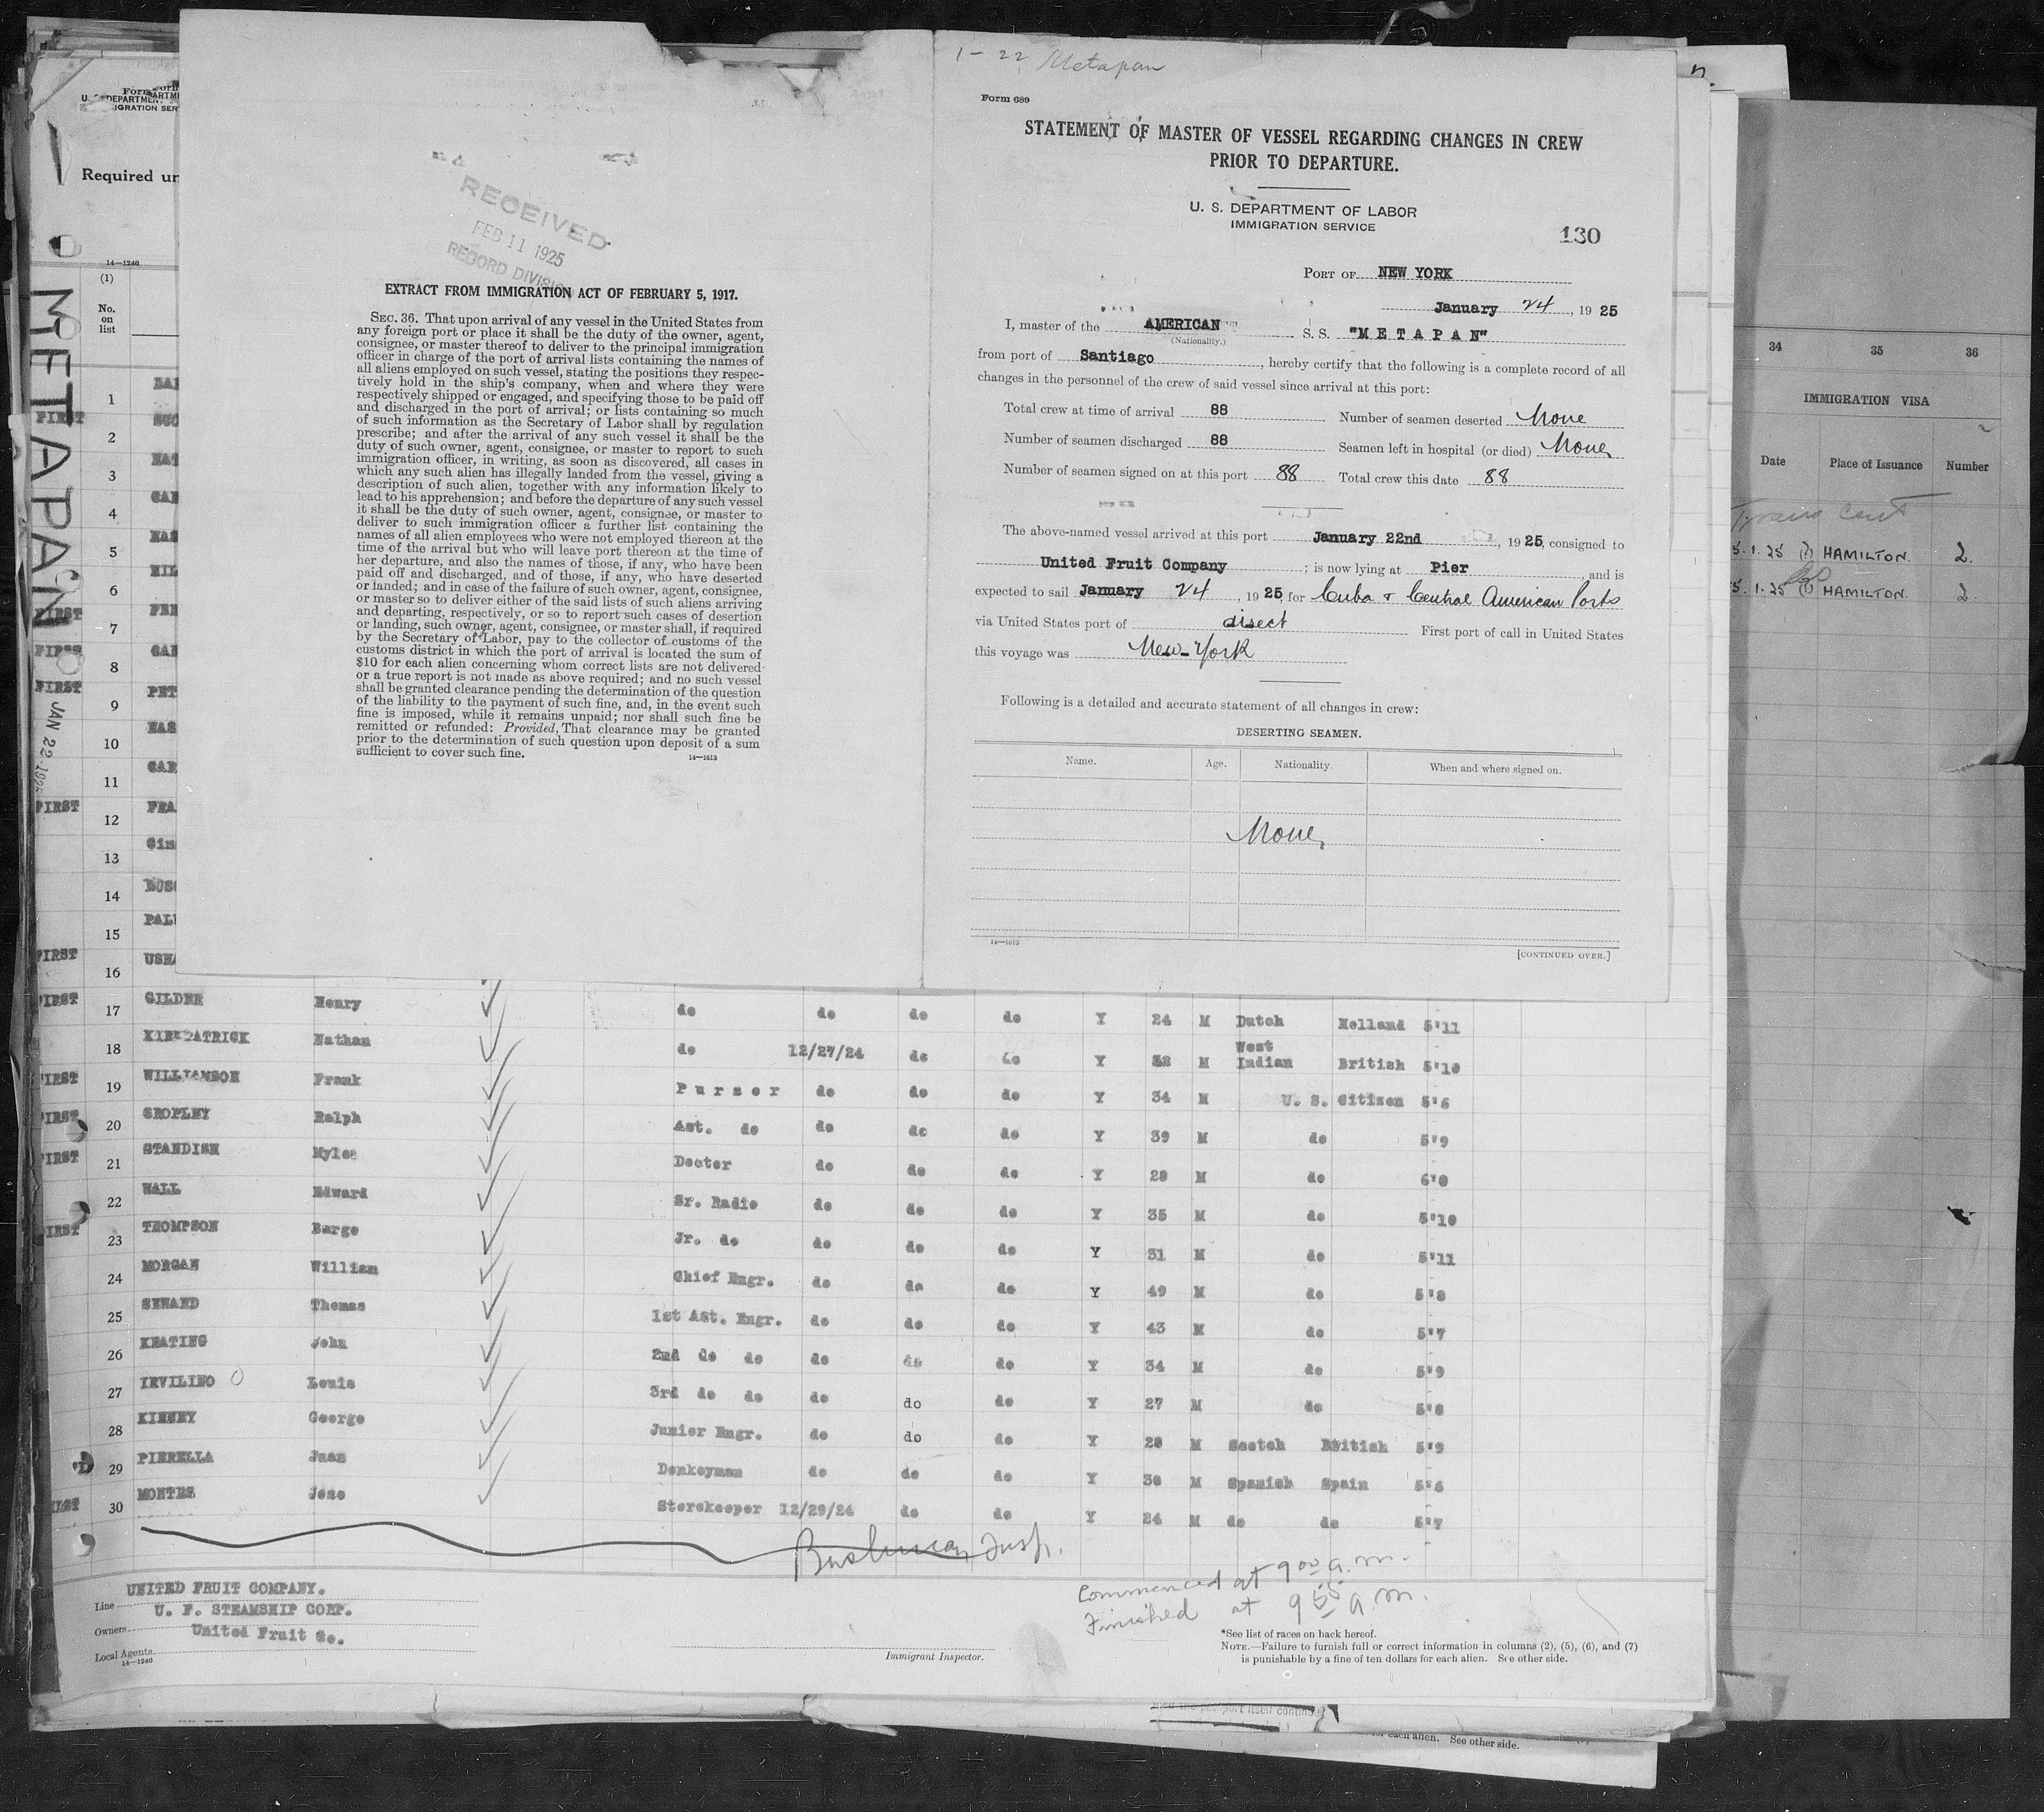 1-22 Metapan
Form 689
STATEMENT OF MASTER OF VESSEL REGARDING CHANGES IN CREW
PRIOR TO DEPARTURE.
U. S. DEPARTMENT OF LABOR
IMMIGRATION SERVICE
130
PORT OF NEW YORK
January 24, 1925
I, master of the AMERICAN S. S. "METAPAN"
(Nationality.)
from port of Santiago, hereby certify that the following is a complete record of all
changes in the personnel of the crew of said vessel since arrival at this port:
Total crew at time of arrival 88 Number of seamen deserted None
Number of seamen discharged 88 Seamen left in hospital (or died) None
Number of seamen signed on at this port 88 Total crew this date 88
The above-named vessel arrived at this port January 22nd, 1925, consigned to
United Fruit Company; is now lying at Pier, and is
expected to sail January 24, 1925, for Cuba & Central American Ports
via United States port of direct First port of call in United States
this voyage was New-York
Following is a detailed and accurate statement of all changes in crew:
DESERTING SEAMEN.
Name. Age. Nationality When and where signed on.
None
14—1613
[CONTINUED OVER.]
RECEIVED
FEB 11 1925
RECORD DIVISION
EXTRACT FROM IMMIGRATION ACT OF FEBRUARY 5, 1917.
SEC. 36. That upon arrival of any vessel in the United States from
any foreign port or place it shall be the duty of the owner, agent,
consignee, or master thereof to deliver to the principal immigration
officer in charge of the port of arrival lists containing the names of
all aliens employed on such vessel, stating the positions they respec-
tively hold in the ship's company, when and where they were
respectively shipped or engaged, and specifying those to be paid off
and discharged in the port of arrival; or lists containing so much
of such information as the Secretary of Labor shall by regulation
prescribe; and after the arrival of any such vessel it shall be the
duty of such owner, agent, consignee, or master to report to such
immigration officer, in writing, as soon as discovered, all cases in
which any such alien has illegally landed from the vessel, giving a
description of such alien, together with any information likely to
lead to his apprehension; and before the departure of any such vessel
it shall be the duty of such owner, agent, consignee, or master to
deliver to such immigration officer a further list containing the
names of all alien employees who were not employed thereon at the
time of the arrival but who will leave port thereon at the time of
her departure, and also the names of those, if any, who have been
paid off and discharged, and of those, if any, who have deserted
or landed; and in case of the failure of such owner, agent, consignee,
or master so to deliver either of the said lists of such aliens arriving
and departing, respectively, or so to report such cases of desertion
or landing, such owner, agent, consignee, or master shall, if required
by the Secretary of Labor, pay to the collector of customs of the
customs district in which the port of arrival is located the sum of
$10 for each alien concerning whom correct lists are not delivered
or a true report is not made as above required; and no such vessel
shall be granted clearance pending the determination of the question
of the liability to the payment of such fine, and, in the event such
fine is imposed, while it remains unpaid; nor shall such fine be
remitted or refunded: Provided, That clearance may be granted
prior to the determination of such question upon deposit of a sum
sufficient to cover such fine.
14—1613
Required un
14—1240
(1)
No.
on
list
METAPAN
JAN 22 1925
1
FIRST 2
3
4
5
6
FIRST 7
FIRST 8
FIRST 9
10
11
FIRST 12
13
14
15
FIRST 16
FIRST 17 GILDER Henry do do do do Y 24 M Dutch Holland 5'11
18 KIRKPATRICK Nathan do 12/27/24 do do Y M West Indian British 5'10
FIRST 19 WILLIAMSON Frank Purser do do do Y 34 M U. S. Citizen 5'6
FIRST 20 SROPLEY Ralph Ast. do do do do Y 39 M do 5'9
FIRST 21 STANDISH Myles Doctor do do do Y 28 M do 6'0
22 WALL Edward Sr. Radio do do do Y 35 M do 5'10
FIRST 23 THOMPSON Barge Jr. do do do do Y 31 M do 5'11
24 MORGAN William Chief Engr. do do do Y 49 M do 5'8
25 SEWARD Thomas 1st Ast. Engr. do do do Y 43 M do 5'7
26 KEATING John 2nd do do do do do Y 34 M do 5'9
27 IRVILINO Louis 3rd do do do do do Y 27 M do 5'8
28 KINNEY George Junior Engr. do do do Y 28 M Scotch British 5'9
29 PIERELLA Juan Donkeyman do do do Y 30 M Spanish Spain 5'6
30 MONTES Jose Storekeeper 12/29/24 do do Y 24 M do do 5'7
Insp.
Commenced at 9 00 a.m.
Finished at 9 55 a.m.
Line UNITED FRUIT COMPANY.
Owners U. F. STEAMSHIP CORP.
Local Agents United Fruit Co.
14—1240
Immigrant Inspector.
*See list of races on back hereof.
NOTE.—Failure to furnish full or correct information in columns (2), (5), (6), and (7)
is punishable by a fine of ten dollars for each alien. See other side.
for each alien. See other side.
34 35 36
IMMIGRATION VISA
Date Place of Issuance Number
Trans Cert
5.1.25 HAMILTON. 2.
5.1.25 HAMILTON. 2.